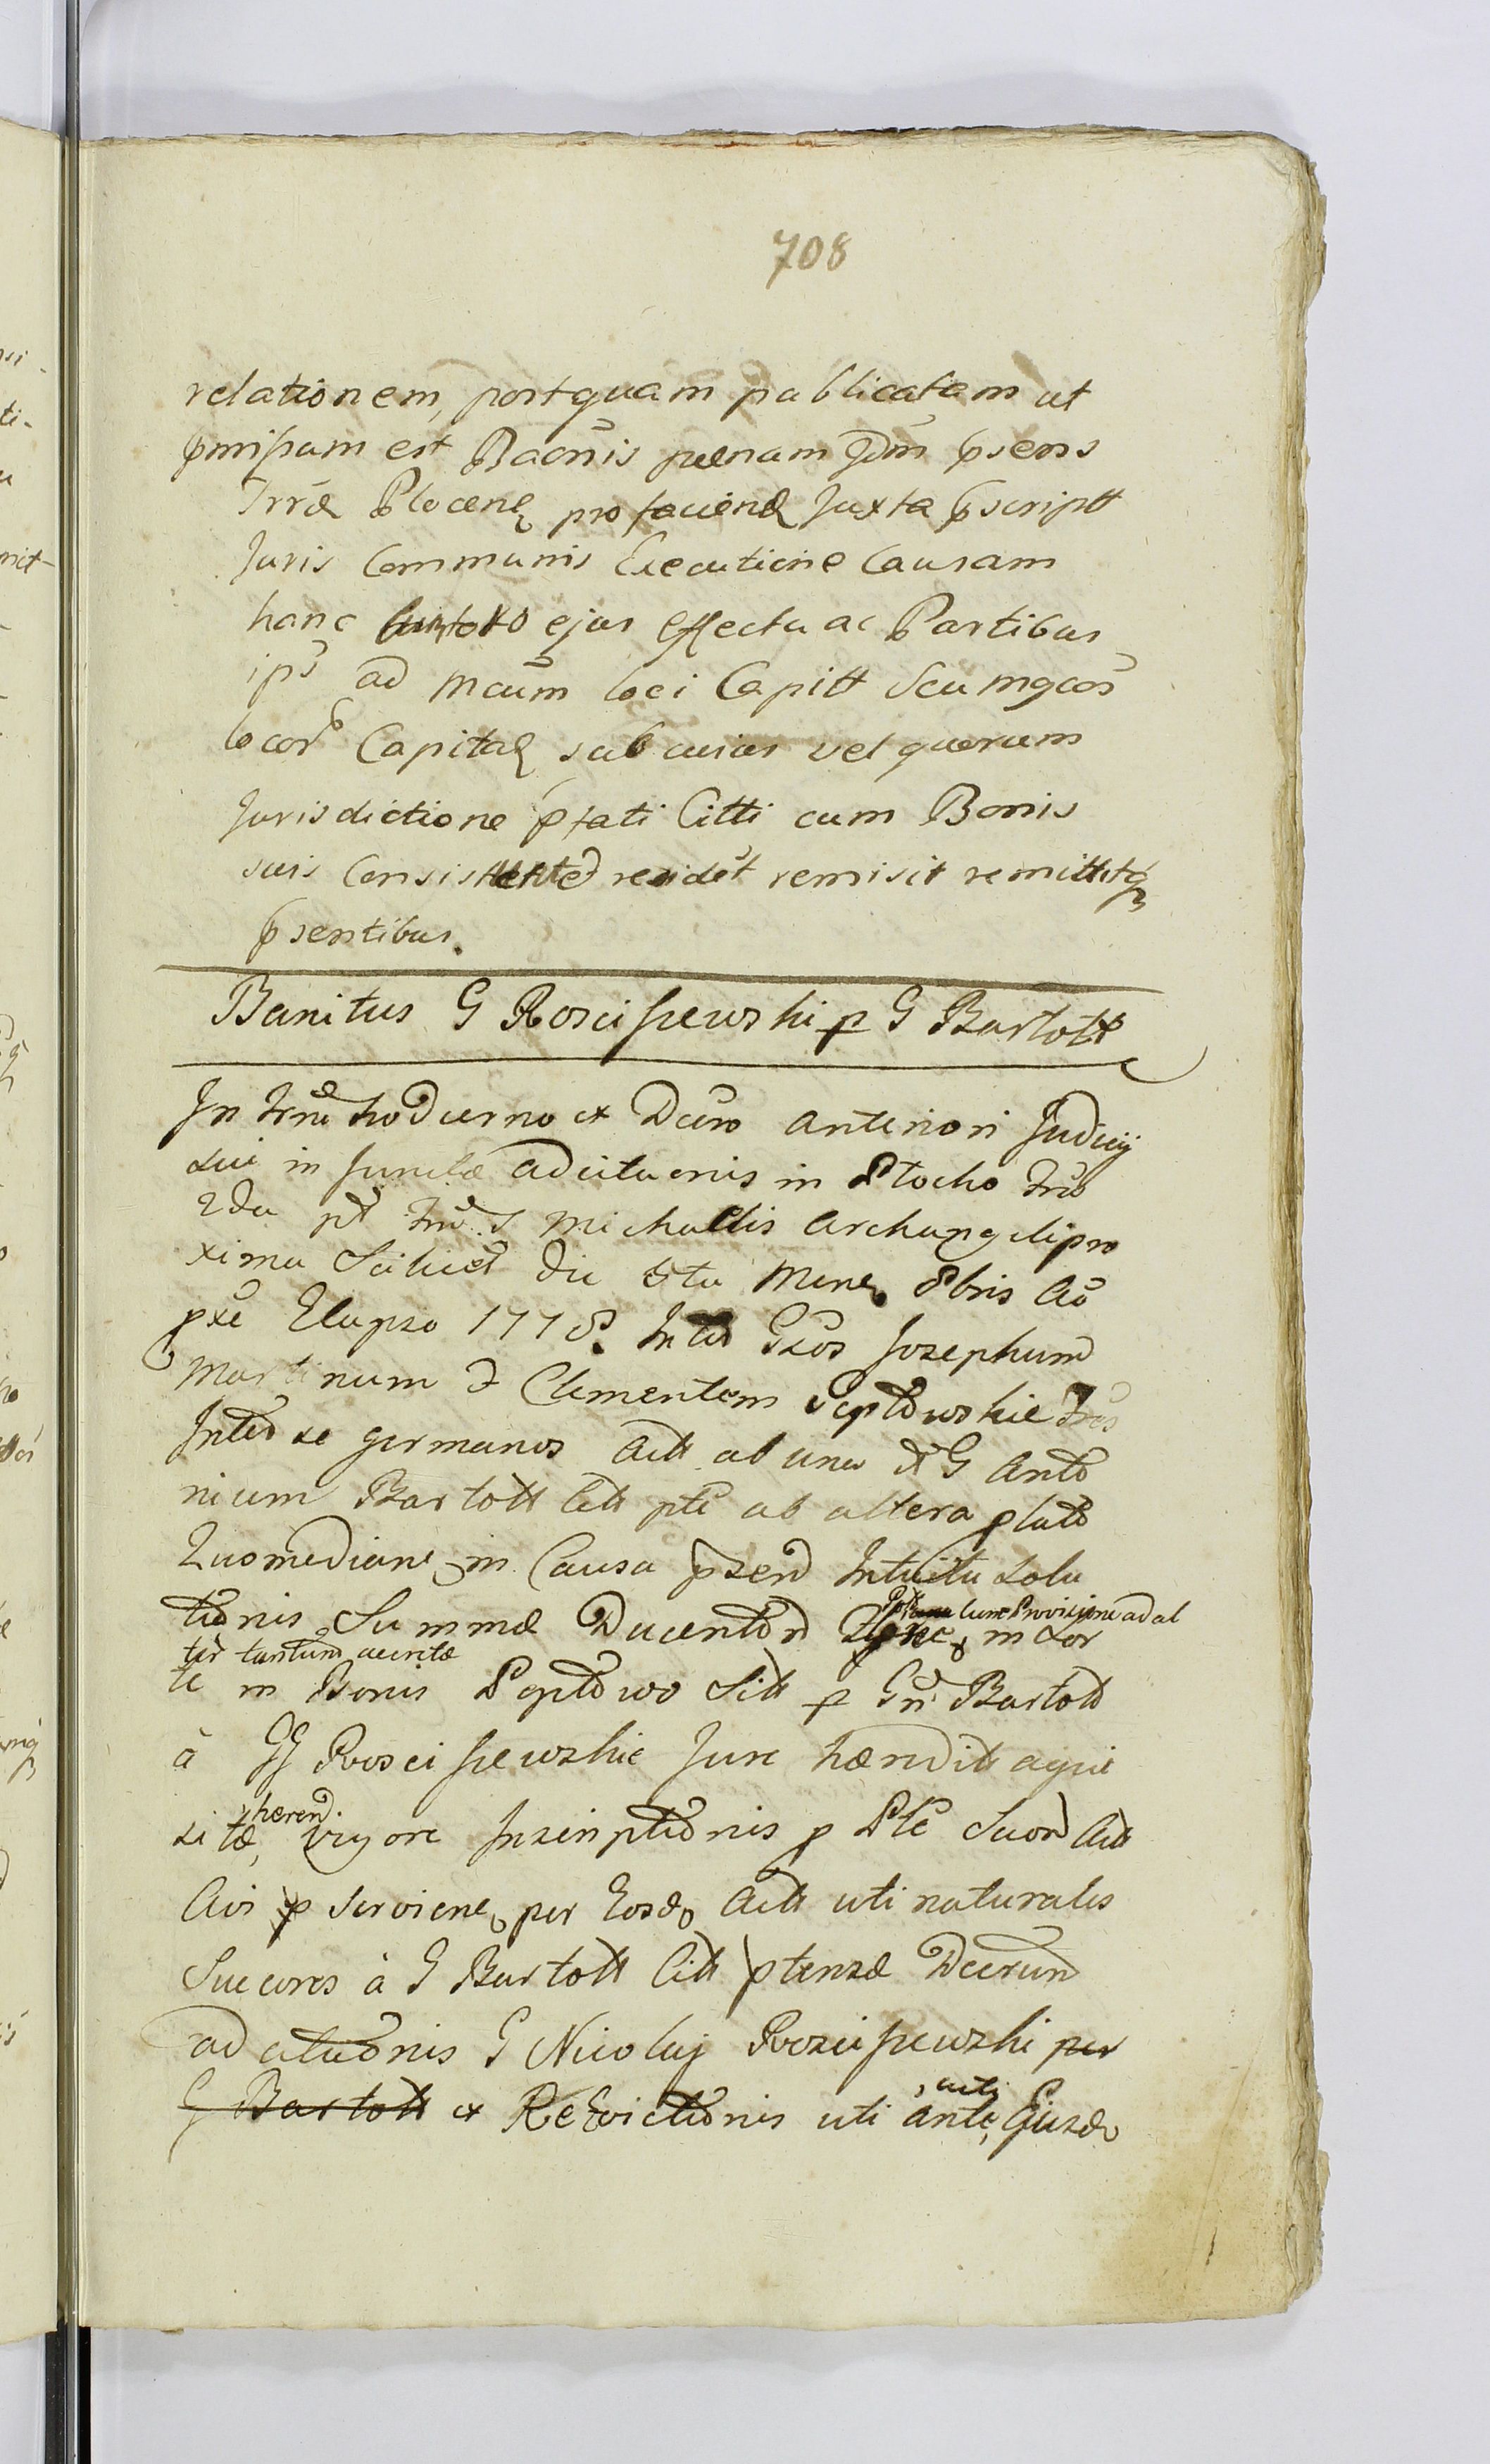 708
relationem, postquam publicatam ut
pmissum est Baonis paenam Jdm psens
Trrae Plocens pro faciend Juxta pscriptt
Juris Communis Executione Causam
hanc toto ejus effectu ac Partibus
ips ad mcum loci Capitt Seu mgcos
locor Capital sub cuius vel quorum
Jurisdictione pfati Citti cum Bonis
suis Consist resident remisit remittitq
psentibus.
Banitus G Rosciszewski p G Bartott
In Trno hodierno ex Dcro anteriori Judicij
sui in functae adcitaonis in Plocko Tris
2da pt Trie S Michaelis Archangeli pro
xima Scilicet die 5ta Mens 8bris Ao
pxe Elapso 1778. Inter Gsos Josephum
Martinum & Clementem Septowskie Frs
Inter se germanos Actt ab una & G Anto
nium Bartott Citt pte ab altera plato
Quomediane in Causa psend Intuitu Solu
tionis Summae Ducentor in Sor
cum Provisione ad al
ter tantum accretae
te in Bonis Septowo Sitt p Gn Bartott
à GG Roosciszewskie Jure haeredit aqui
sitae, vigore Inscriptionis p Pte Suor Actt
haered.
Avi p Serviene per Eosd Actt uti naturales
Succores à G Bartott Citt ptensae Decrum
adcitaonis G Nicolaj Roosciszewski per
G Bartott et ReEvictionis uti ante, Ejusd
, citt